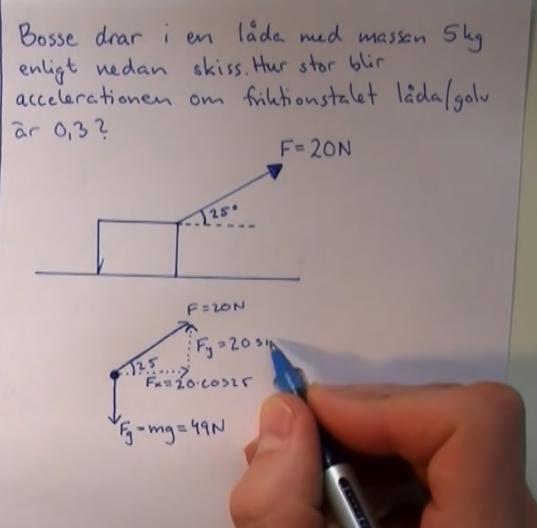 Bosse drar i en låda med massan 5kg
enligt nedan skiss. Hur stor blir
accelerationen om friktionstalet låda/golv
är 0,3?
F=20N
25°
F=20N
Fy=20 sin
25
Fx=20·cos25
Fg=mg=49N